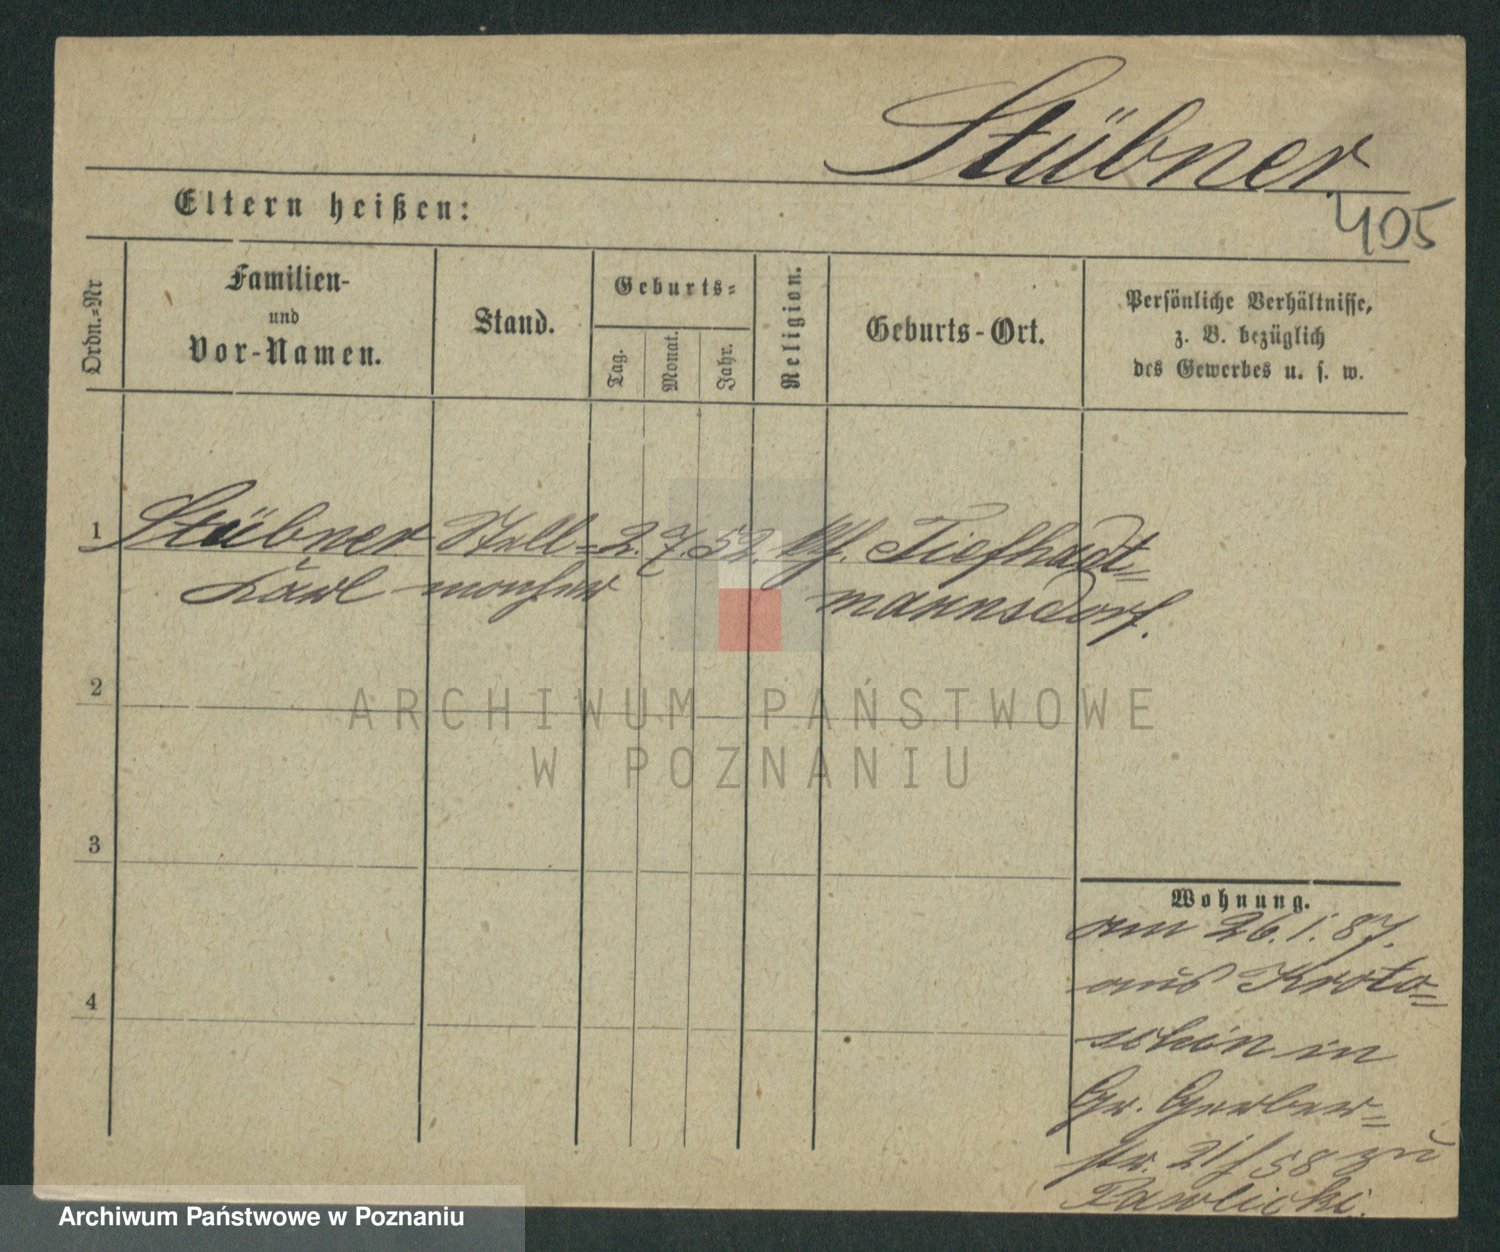 Stübner
405
Eltern heißen:
Ordn.-Nr
Familien-
und
Vor-Namen.
Stand.
Geburts-
Tag.
Monat.
Jahr.
Religion.
Geburts-Ort.
Persönliche Verhältnisse,
z. B. bezüglich
des Gewerbes u. s. w.
1 Stübner Stell= 2. 7. 52. Tiefhardt=
Karl macher mannsdorf.
2
3
4
Wohnung.
am 26. 1. 87.
aus Kroto=
schin in
Gr. Gerber=
str. 21/58 zu
Pawlicki.
ARCHIWUM PAŃSTWOWE
W POZNANIU
Archiwum Państwowe w Poznaniu